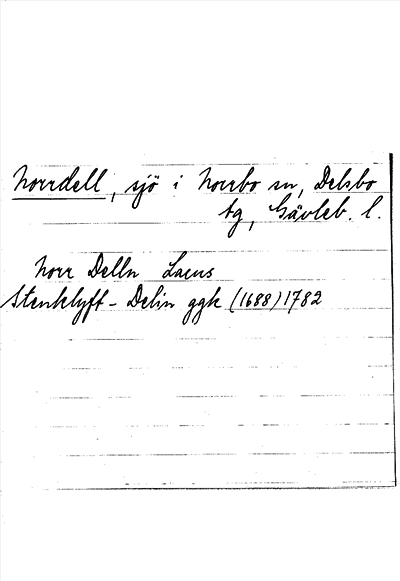 Norrdell, sjö i Norrbo sn, Delsbo
tg, Gävleb. l.
Norr Delln Lacus
Stenklyft - Delin ggk (1688) 1782